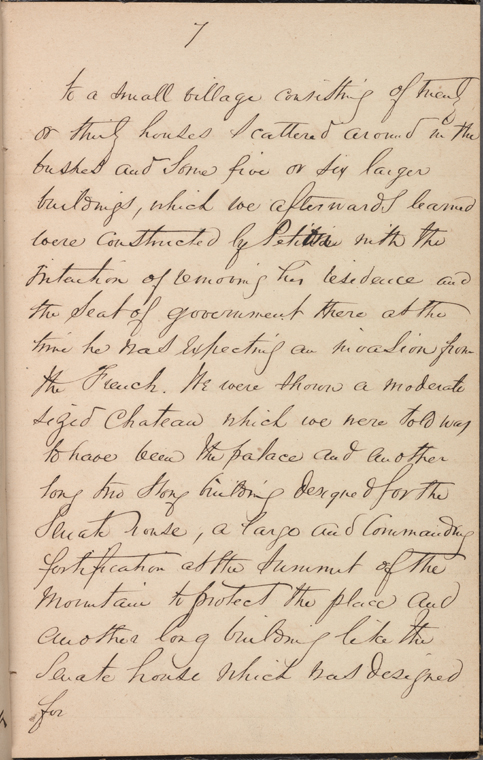 7
to a small village consisting of twenty
or thirty houses scattered around in the
bushes and some five or six larger
buildings, which we afterwards learned
were constructed by Petition with the
intention of removing his residence and
the seat of government there at the
time he was expecting an invasion from
the French. We were shown a moderate
sized Chateau which we were told was
to have been the palace and another
long two story building designed for the
Senate house, a large and Commanding
fortification at the summit of the
Mountain to protect the place and
another long building like the
Senate house which was designed
for